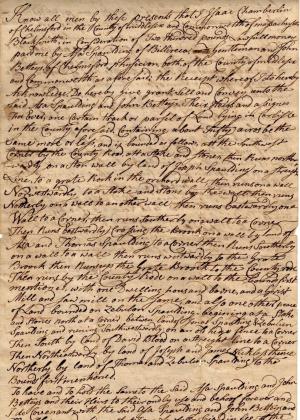 Know all men by these presents that I Isaac Chamberlin
of Chelmsford in the County of Middlesex and Commonwealth of
Blacksmith in Consideration of Two Hundred pounds lawfull money
Paid me by Asa Spaulding of Billerica Gentleman and John
Betteys of Chelmsford Physician both of the County of Middlesex
and Commonwealth as aforesaid the Receipt whereof I do hereby
Acknowledge, Do hereby give grant sell and Convey unto the
said Asa Spaulding and John Betteys Their Heirs and assigns
for ever a certain track or parsel of Land lying in Carlisle
in the County aforesaid Containing about Thirty acres be the
same more or less, and is bounded as follows, at the Southwest
Corner by the County Road, at a stake and stones then Runs north
wardly on a stone wall by land of Spaulding on a straight
Line, to a grate rock in the orchard land then runs on a wall
Northwestwardly to a stake and stone by the then runs
Northerly on a wall to another wall then runs Eastwardly on a
Wall to a Corner, then runs Southerly on a wall to a Corner
Then Runs Eastwardly Crossing the Brook on a wall by Land of
Asa and Thomas Spaulding to a Corner then Runs Southerly
on a wall to a wall then runs westwardly to the Grate
Brook then Runs on the Grate Brook to the County road
Then runs by the County Road on a wall to the Bound first
mentioned, with one Dwelling house and barn, and a grist
Mill and Saw mill on the Same, and also one other piece of
Land bounded on Zebulon Spaulding begining at a Stake
and stones north a of Jesse Spaulding & Zebulon
Spaulding and runing Southwesterly, on a wall to a
Then South by land of David Blood on a straight line to a Corner
Then Northeastwardly by land of Joseph and James
Northerly by land of Thomas and Zebulon Spaulding to the
Bound first mentioned.
To have and to hold the Same to the Said Asa Spaulding and John
Betteys and their Heirs to Their only use and behoof forever and I
do Covenant with the said Asa Spaulding and John Betteys